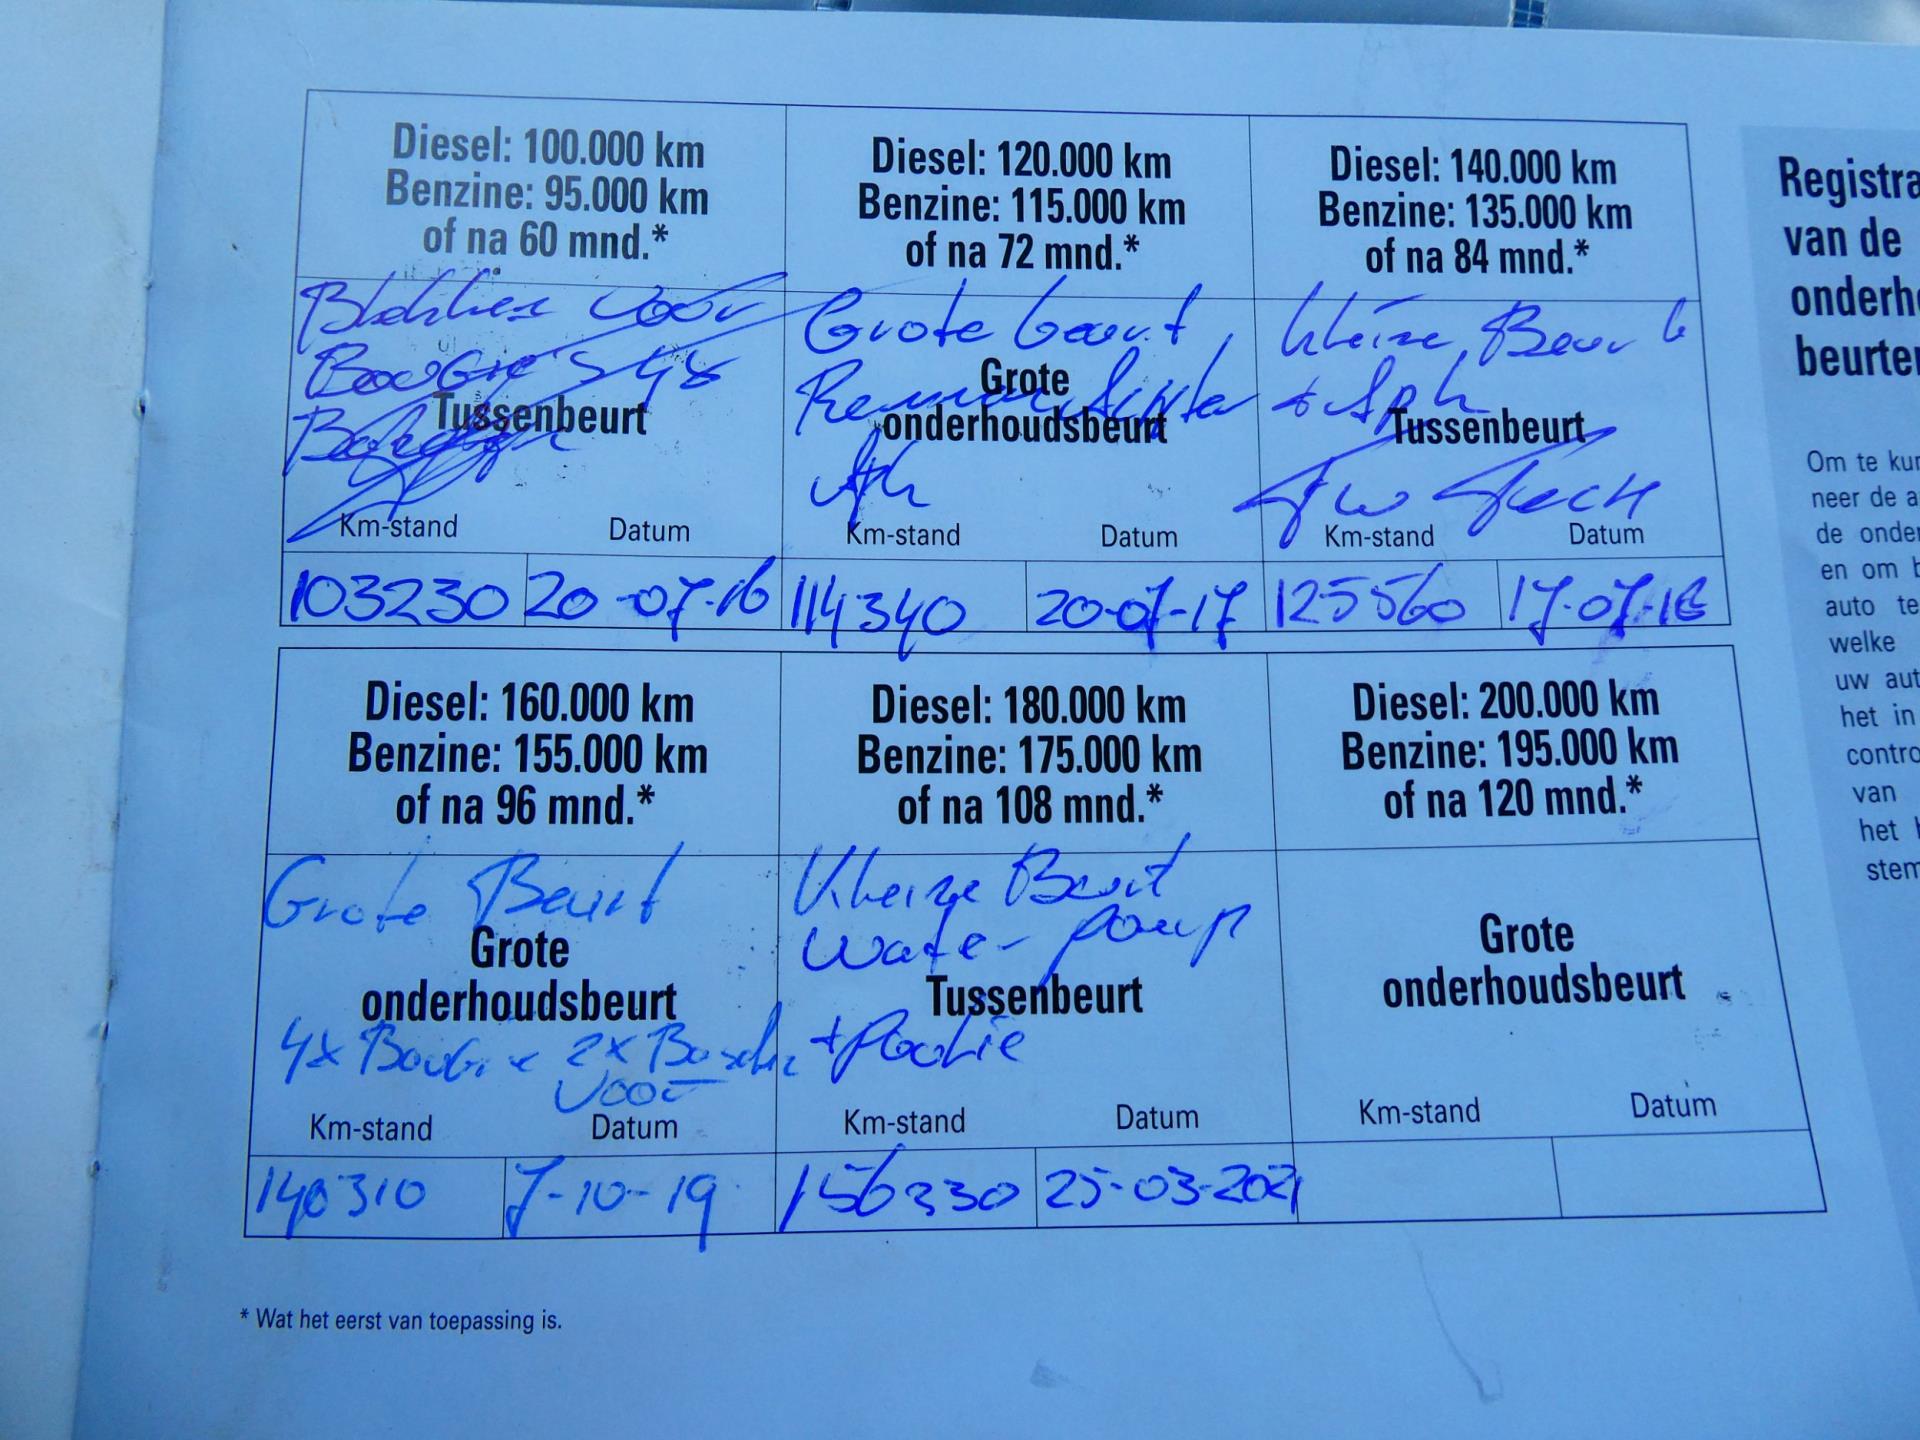 Diesel: 100.000 km
Benzine: 95.000 km
of na 60 mnd.*
voor
Tussenbeurt
Km-stand Datum
103230 20-07-16
Diesel: 120.000 km
Benzine: 115.000 km
of na 72 mnd.*
Grote beurt
Grote
onderhoudsbeurt
Km-stand Datum
114340 20-07-17
Diesel: 140.000 km
Benzine: 135.000 km
of na 84 mnd.*
Kleine Beurt
Tussenbeurt
Km-stand Datum
125560
Diesel: 160.000 km
Benzine: 155.000 km
of na 96 mnd.*
Grote Beurt
Grote
onderhoudsbeurt
4x Bougie 2x
voor
Km-stand Datum
140310 7-10-19
Diesel: 180.000 km
Benzine: 175.000 km
of na 108 mnd.*
Kleine Beurt
water pomp
Tussenbeurt
+ Poelie
Km-stand Datum
156330 25-03-2021
Diesel: 200.000 km
Benzine: 195.000 km
of na 120 mnd.*
Grote
onderhoudsbeurt
Km-stand Datum
* Wat het eerst van toepassing is.
Registra
van de
onderho
beurten
Om te kun
neer de a
de onder
en om b
auto te
welke
uw aut
het in
contro
van
het
stem